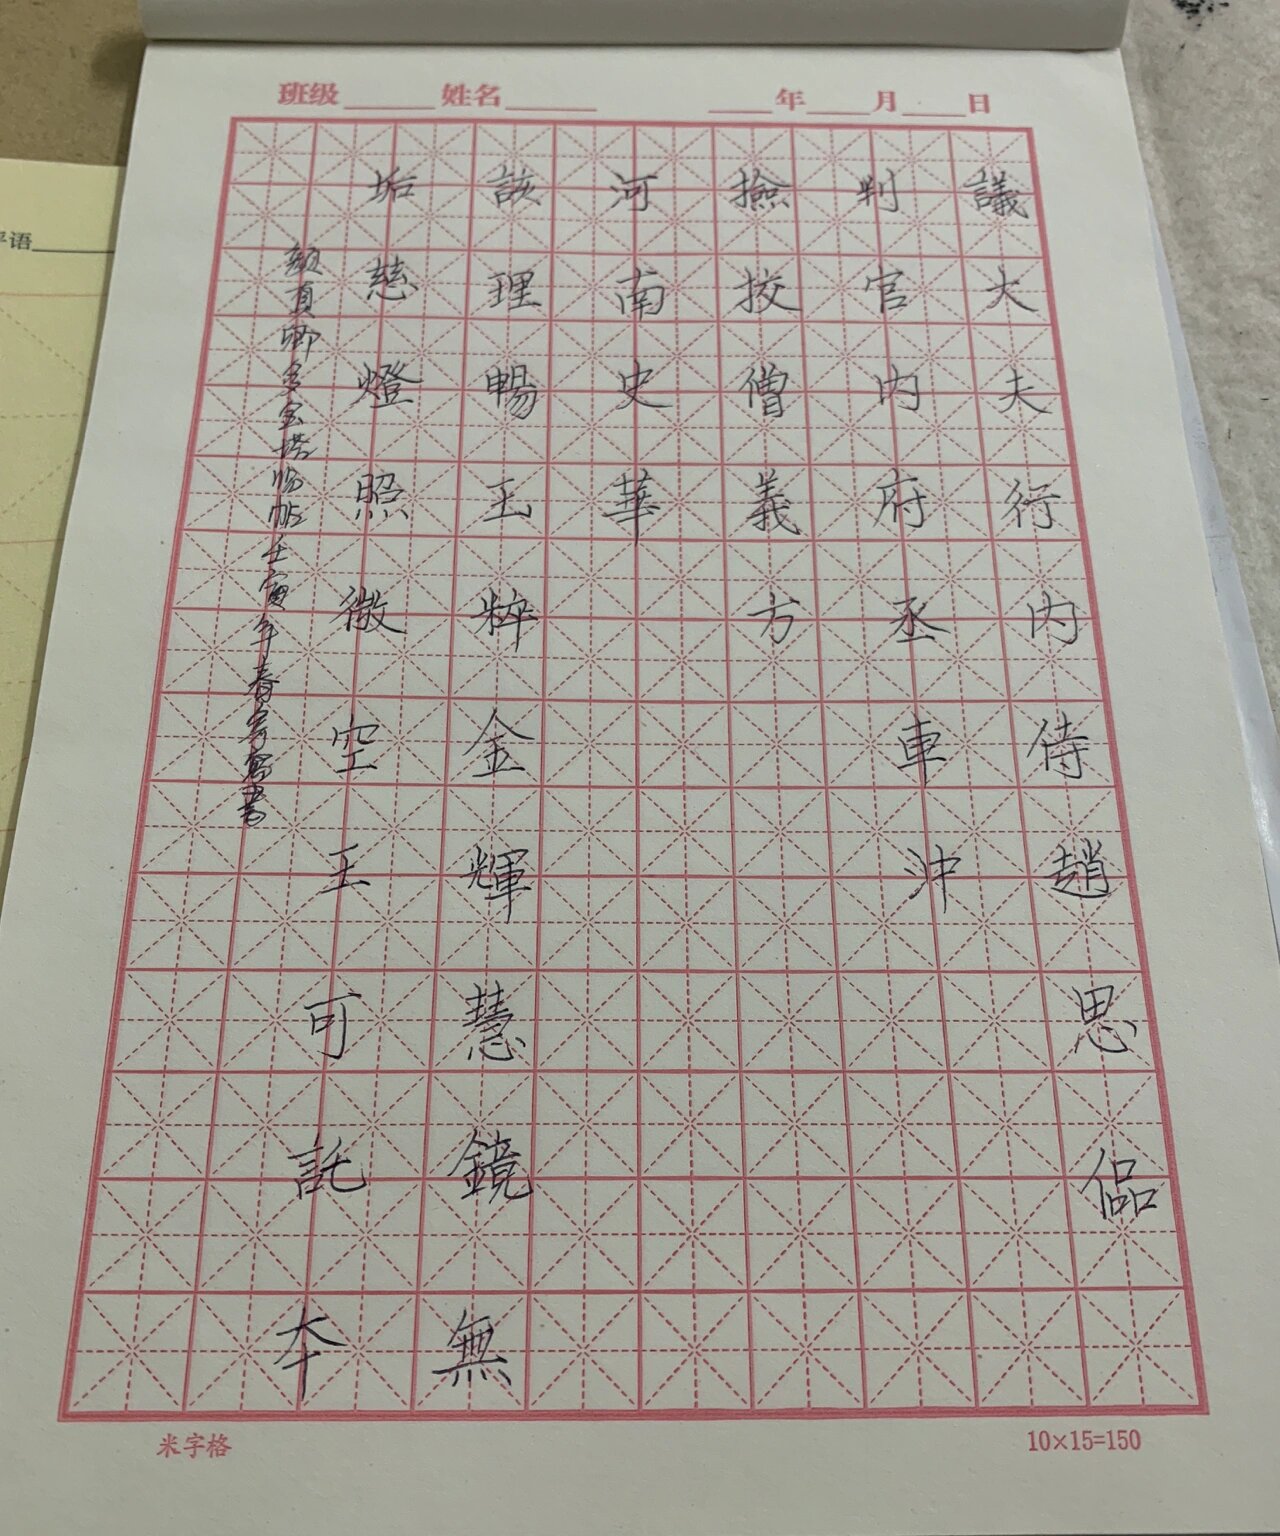 班级 姓名 年 月 日
議大夫行内侍趙思偘
判官内府丞車沖
撿挍僧義方
河南史華
該理暢玉粹金輝慧鏡無
垢慈燈照微空王可託本
顏真卿多宝塔临帖壬寅年春
米字格
10×15=150
评语